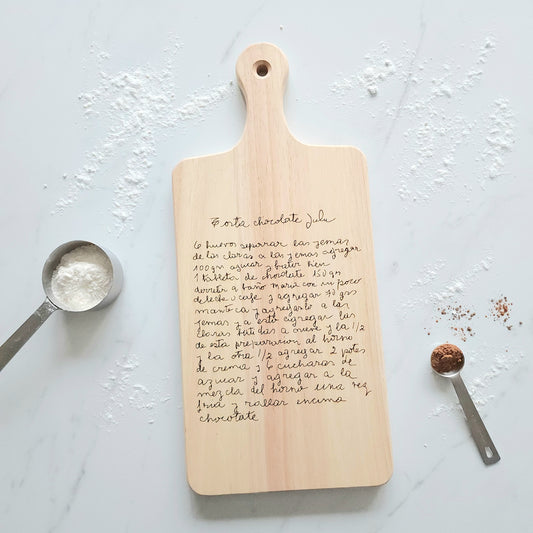 Torta chocolate Julu
6 huevos separar las yemas
de las claras a las yemas agregar
100 grs azucar y batir bien
1 tableta de chocolate 150 grs
derretir a baño maria con un poco
de leche o cafe y agregar 70 grs
manteca y agregarlo a las
yemas y a esto agregar las
claras batidas a nieve y la 1/2
de esta preparacion al horno
y la otra 1/2 agregar 2 potes
de crema y 6 cucharas de
azucar y agregar a la
mezcla del horno una vez
fria y rallar encima
chocolate